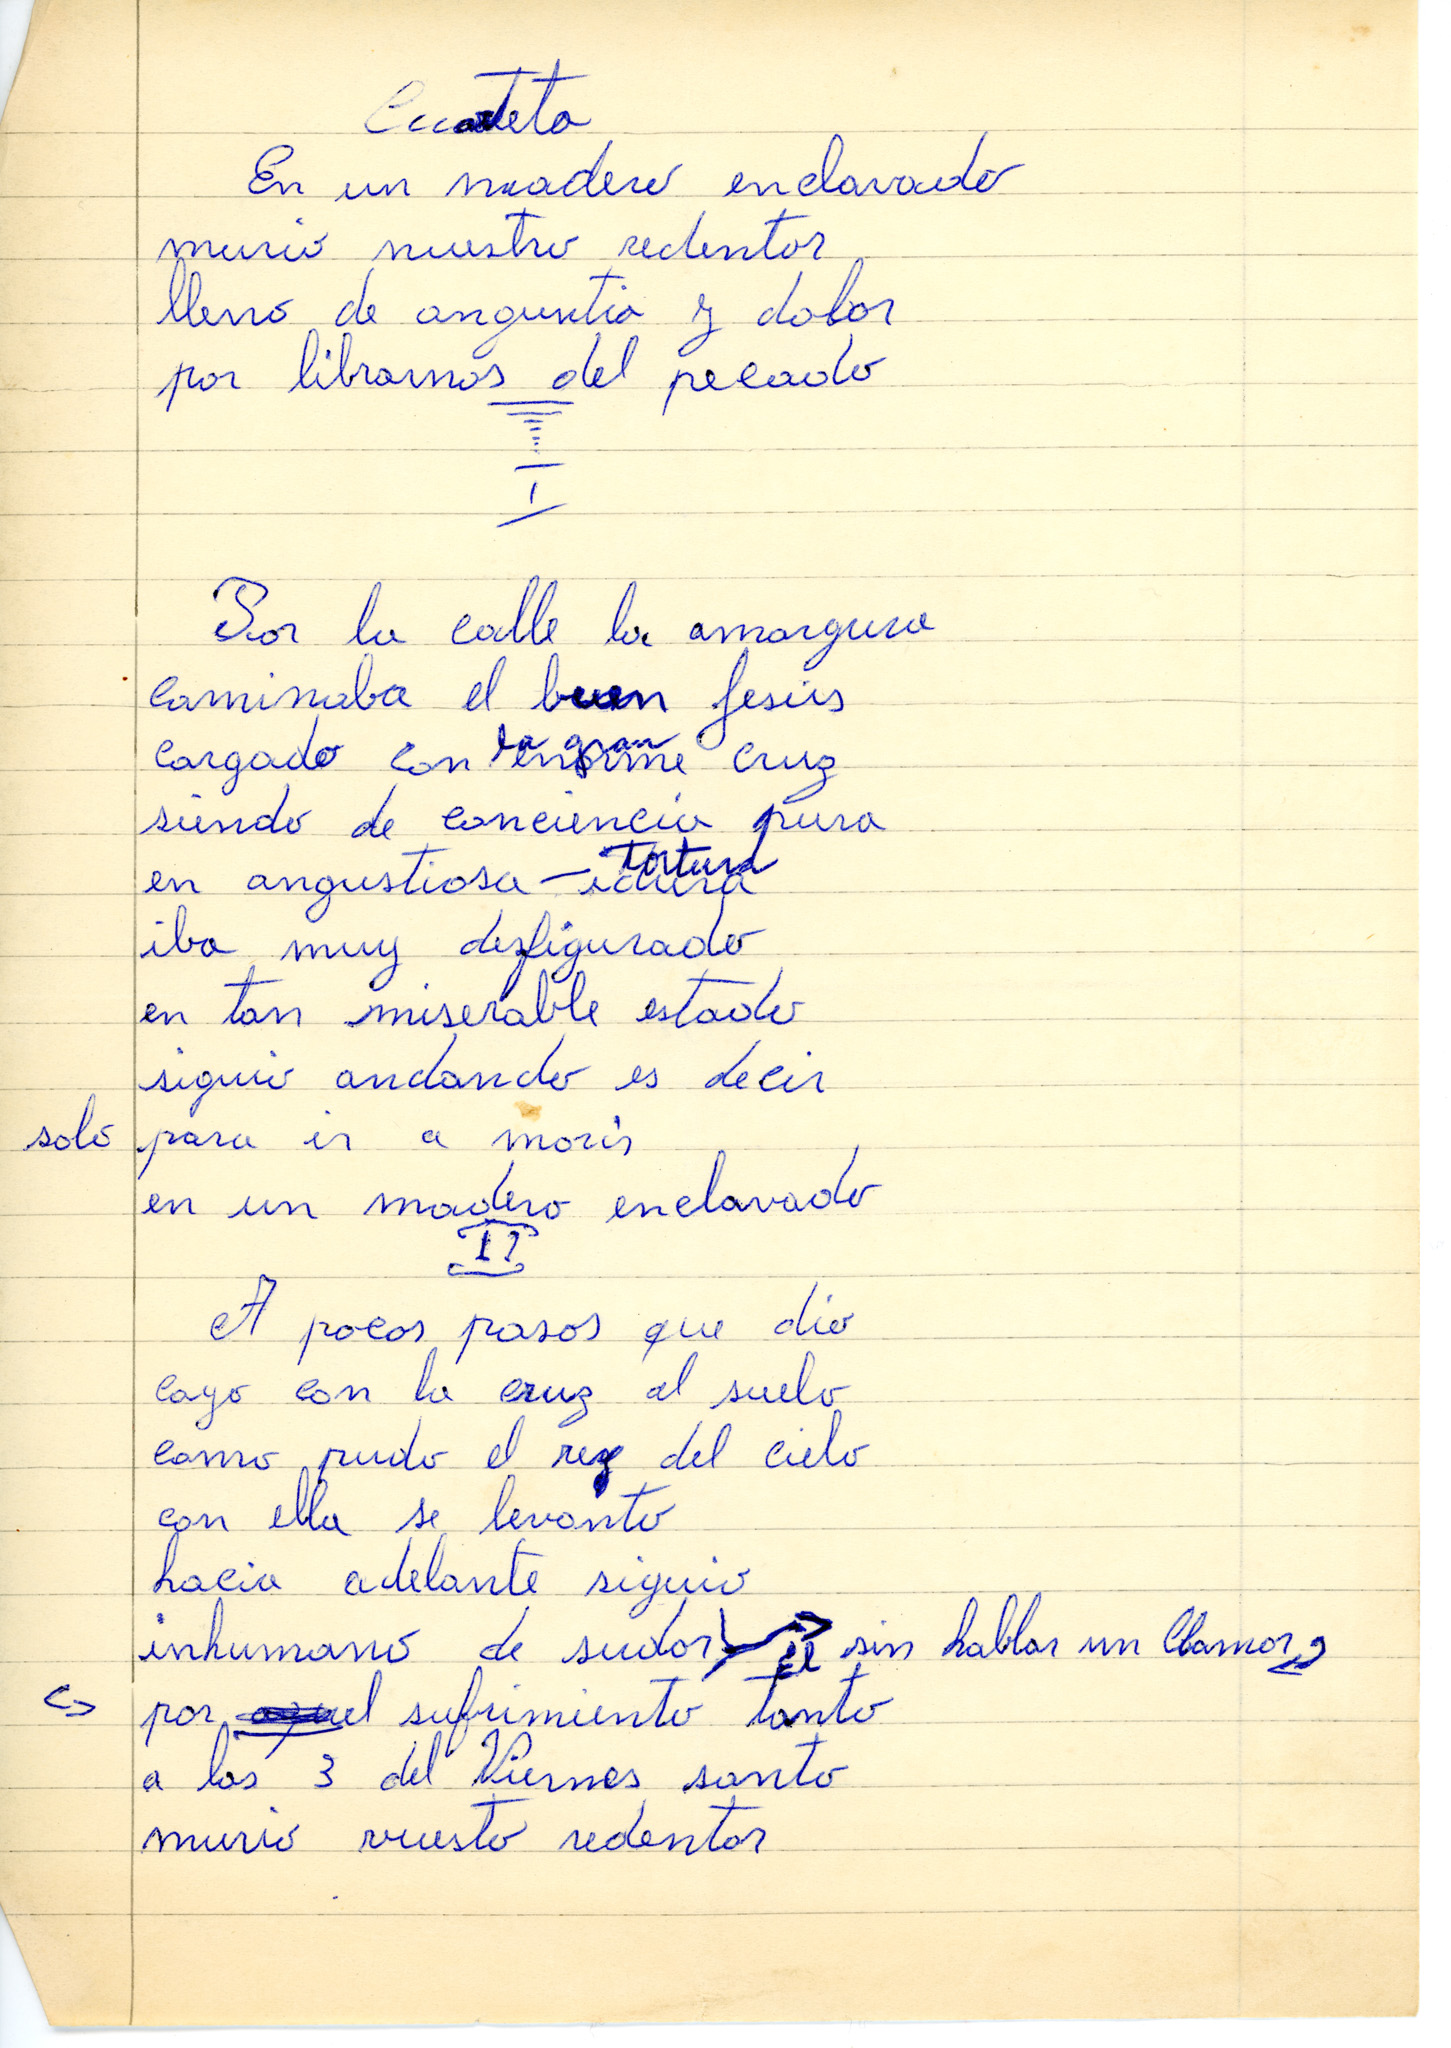 Cuarteta
En un madero enclavado
murio nuestro redentor
lleno de angustia y dolor
por librarnos del pecado
I
Por la calle la amargura
caminaba el buen Jesús
cargado con la gran enorme cruz
siendo de conciencia pura
en angustiosa tortura
iba muy desfigurado
en tan miserable estado
siguio andando es decir
solo para ir a morir
en un madero enclavado
II
A pocos pasos que dio
cayo con la cruz al suelo
como pudo el rey del cielo
con ella se levanto
hacia adelante siguio
inhumano de sudor sin hablar un Clamor
por aquel sufrimiento tanto
a las 3 del Viernes santo
murio vuesto redentor